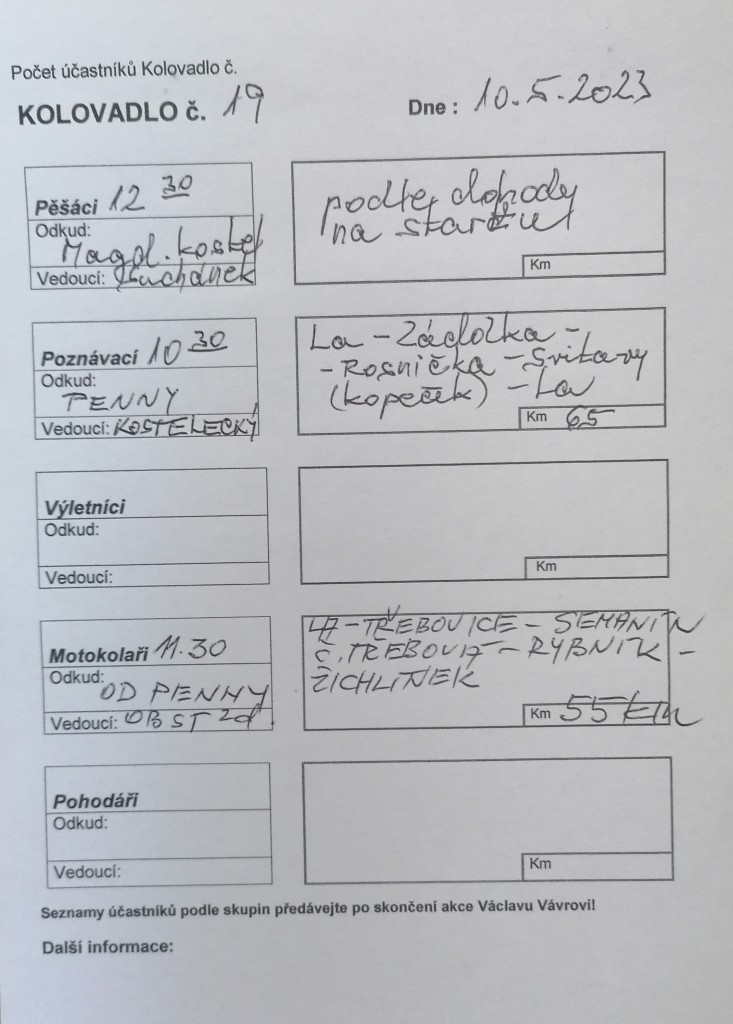 Počet účastníků Kolovadlo č.
KOLOVADLO č. 19
Dne : 10.5.2023
Pěšáci 12 30
Odkud:
Magd. kostel
Vedoucí: Suchánek
podle dohody
na startu
Km
Poznávací 10 30
Odkud:
PENNY
Vedoucí: KOSTELECKÝ
La - Zádolžka -
- Rosnička - Svitavy
(kopeček) - La
Km 65
Výletníci
Odkud:
Vedoucí:
Km
Motokolaři 11.30
Odkud:
OD PENNY
Vedoucí:
LA - TŘEBOVICE - SEMANÍN
Č. TŘEBOVÁ - RYBNÍK -
ŽICHLÍNEK
Km 55 km
Pohodáři
Odkud:
Vedoucí:
Km
Seznamy účastníků podle skupin předávejte po skončení akce Václavu Vávrovi!
Další informace: